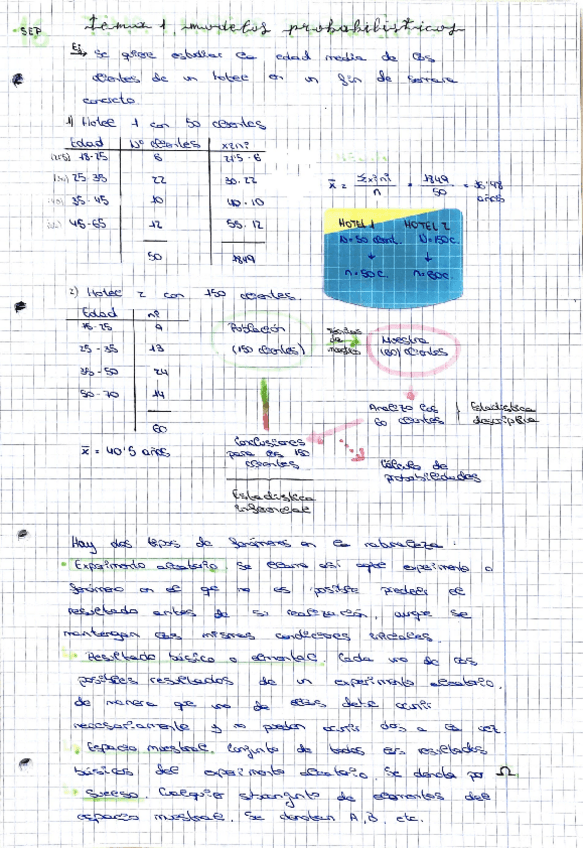 -SEP
tema 1, modelos probabilísticos
Ej, Se quiere estudiar la edad media de los
clientes de un hotel en un fin de semana
concreto.
1) Hotel 1 con 50 clientes
Edad Nº clientes xi·ni
18-25 6 21'5·6
25-35 22 30·22
35-45 10 40·10
45-65 12 55·12
50 1849
x̄ = Σxi·ni / n = 1849 / 50 = 36'98 años
HOTEL 1 HOTEL 2
N=50 client. N=150c.
↓ ↓
n=50c. n=60c.
2) Hotel 2 con 150 clientes.
Edad ni
25-35 13
35-50 24
50-70 14
60
x̄ = 40'5 años
Población
(150 clientes)
Técnicas de muestreo
Muestra
(60) clientes
Analizo los
60 clientes } Estadística descriptiva
Conclusiones
para los 150
clientes
Cálculo de
probabilidades
Estadística
inferencial
Hay dos tipos de fenómenos en la naturaleza:
· Experimento aleatorio. Se llama así aquel experimento o
fenómeno en el que no es posible predecir el
resultado antes de su realización, aunque se
mantengan las mismas condiciones iniciales.
· Resultado básico o elemental. Cada uno de los
posibles resultados de un experimento aleatorio,
de manera que uno de ellos debe ocurrir
necesariamente y no pueden ocurrir dos a la vez.
· Espacio muestral. Conjunto de todos los resultados
básicos del experimento aleatorio. Se denota por Ω
· Suceso. Cualquier subconjunto de elementos del
espacio muestral. Se denotan A, B, etc.